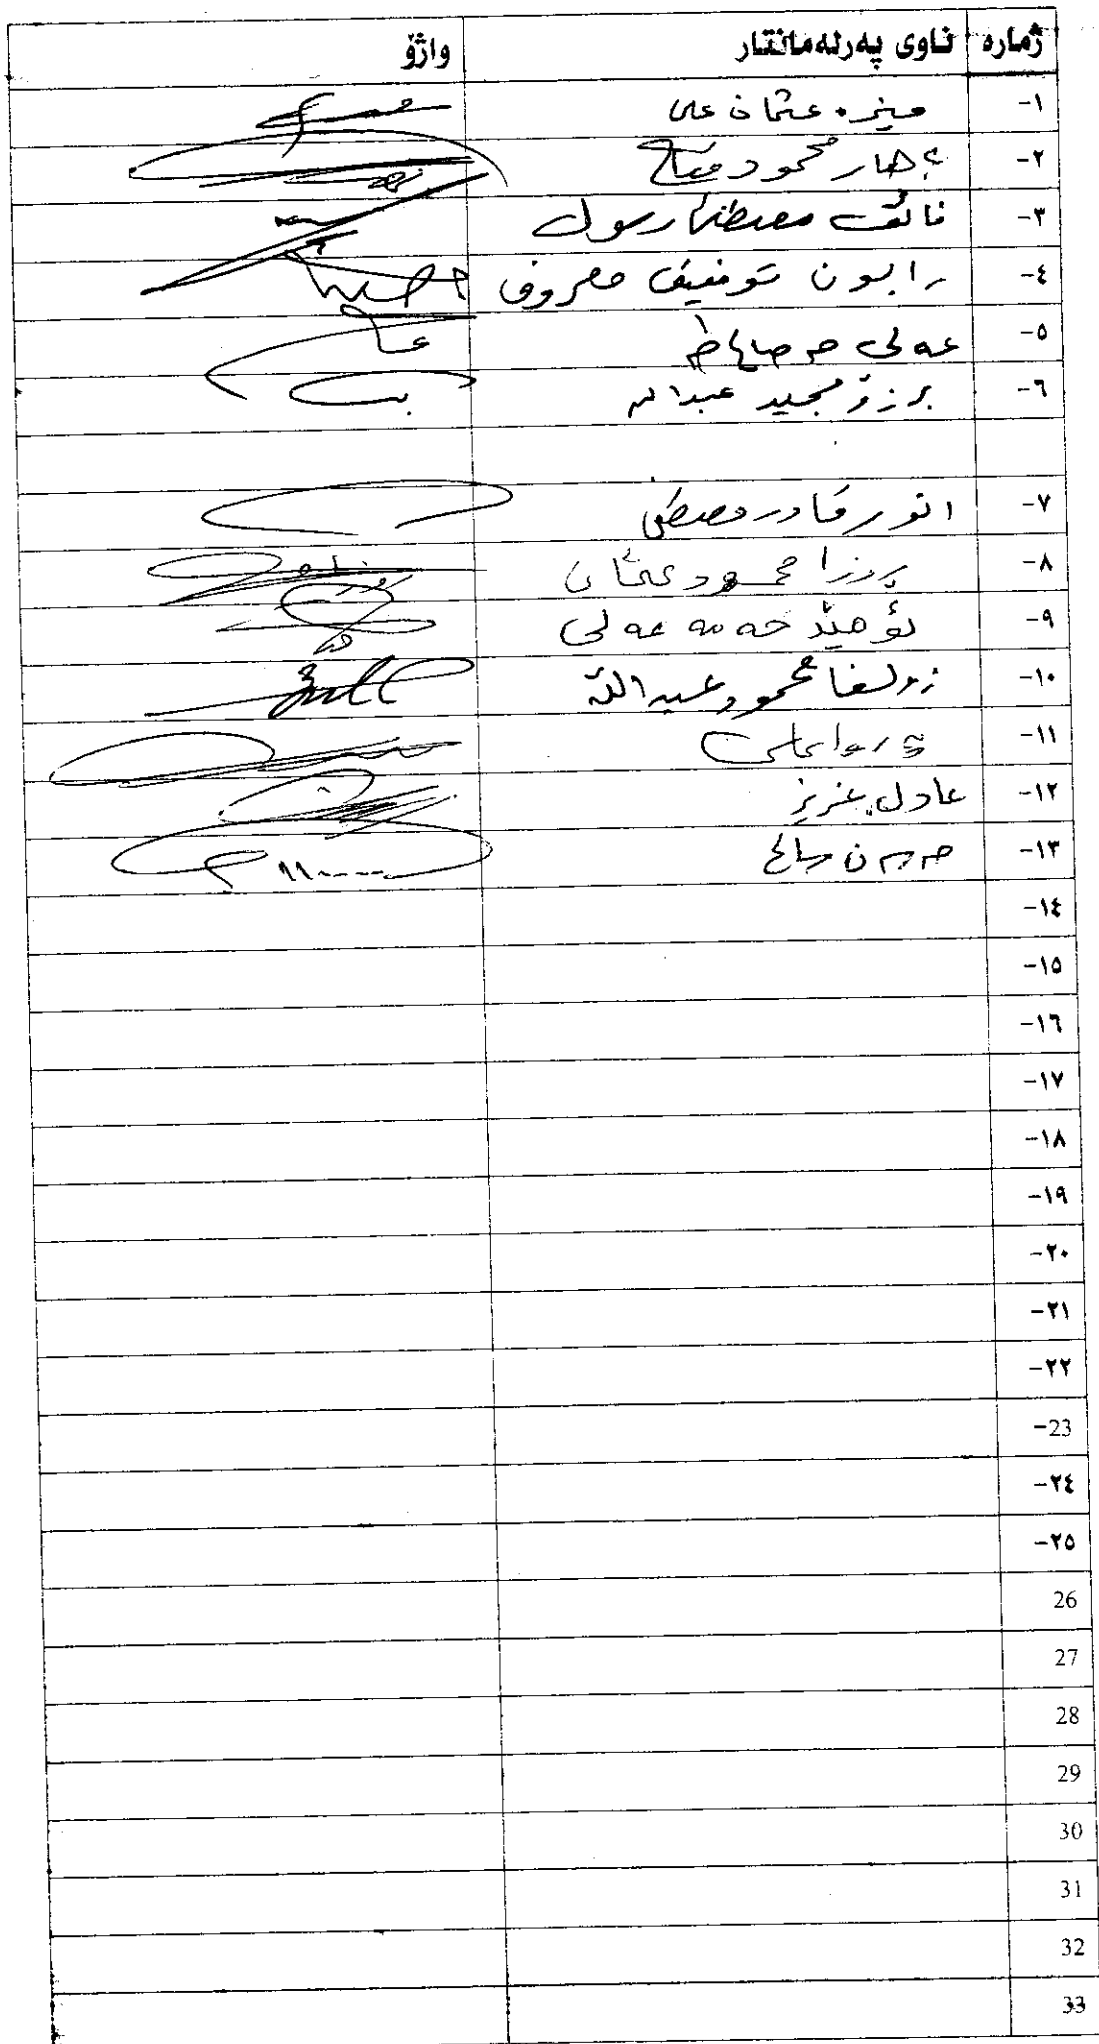 ژمارە ناوی پەرلەمانتار واژۆ
١- منيره عثمان علی
٢- بهار محمود فتاح
٣- فائق مصطفی رسول
٤- رابون توفيق معروف
٥- عەلی حمە صالح
٦- برزۆ مجيد عبدالله
٧- انور قادر مصطفی
٨- پەرزا محمود عثمان
٩- ئۆمێد حەمە عەلی
١٠- زولفا محمود عبدالله
١١- پەروا علی
١٢- عادل عزيز
١٣- صالح
١٤-
١٥-
١٦-
١٧-
١٨-
١٩-
٢٠-
٢١-
٢٢-
23-
٢٤-
٢٥-
26
27
28
29
30
31
32
33